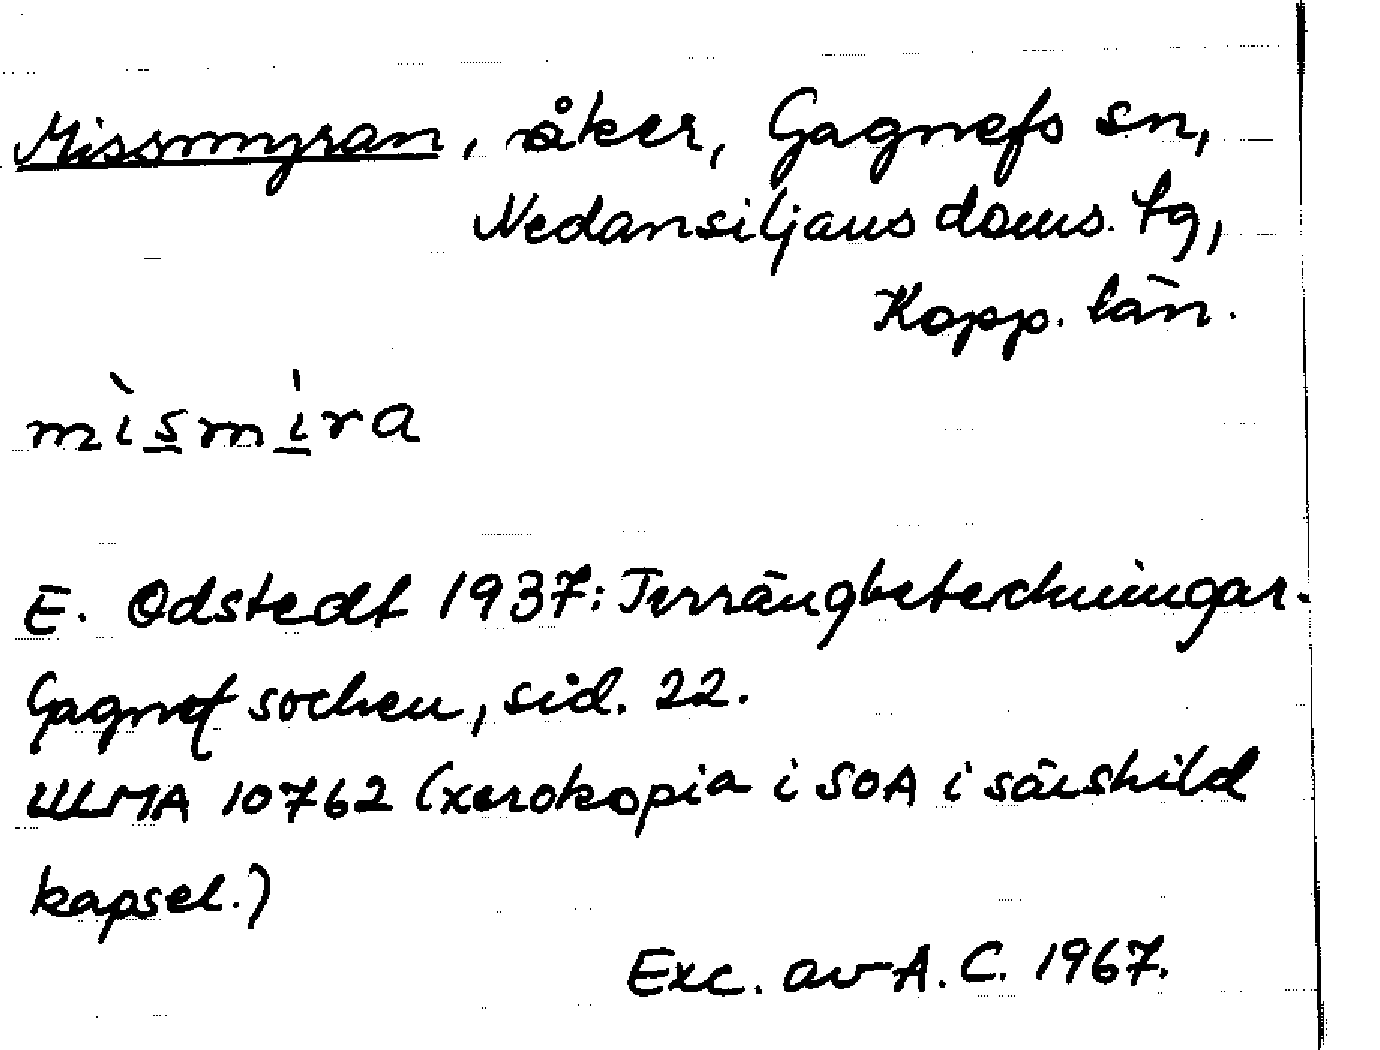 Missmyran, åker, Gagnefs sn,
Nedansiljans doms. tg,
Kopp. län.
mìsmi̍ra
E. Odstedt 1937: Terrängbeteckningar.
Gagnef socken, sid. 22.
ULMA 10762 (xerokopia i SOA i särskild
kapsel.)
Exc. av A. C. 1967.